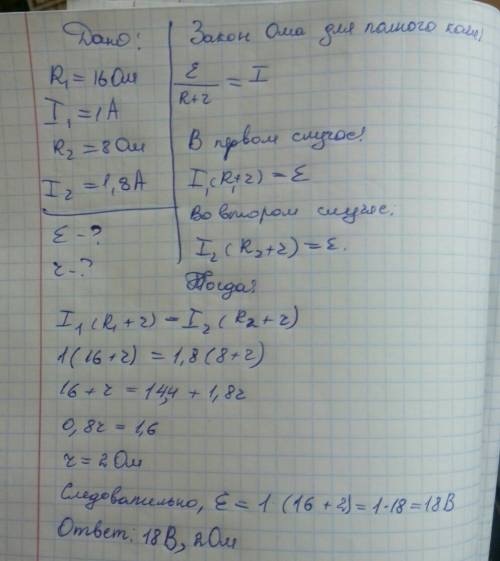 Дано:
R₁ = 16 Ом
I₁ = 1 А
R₂ = 8 Ом
I₂ = 1,8 А
ε - ?
r - ?
Закон Ома для полного
ε / R+r = I
В первом случае:
I₁(R₁+r) = ε
Во втором случае:
I₂(R₂+r) = ε.
Тогда:
I₁(R₁+r) = I₂(R₂+r)
1(16+r) = 1,8(8+r)
16+r = 14,4 + 1,8r
0,8r = 1,6
r = 2 Ом
Следовательно, ε = 1 (16+2) = 1·18 = 18 В
Ответ: 18 В, 2 Ом